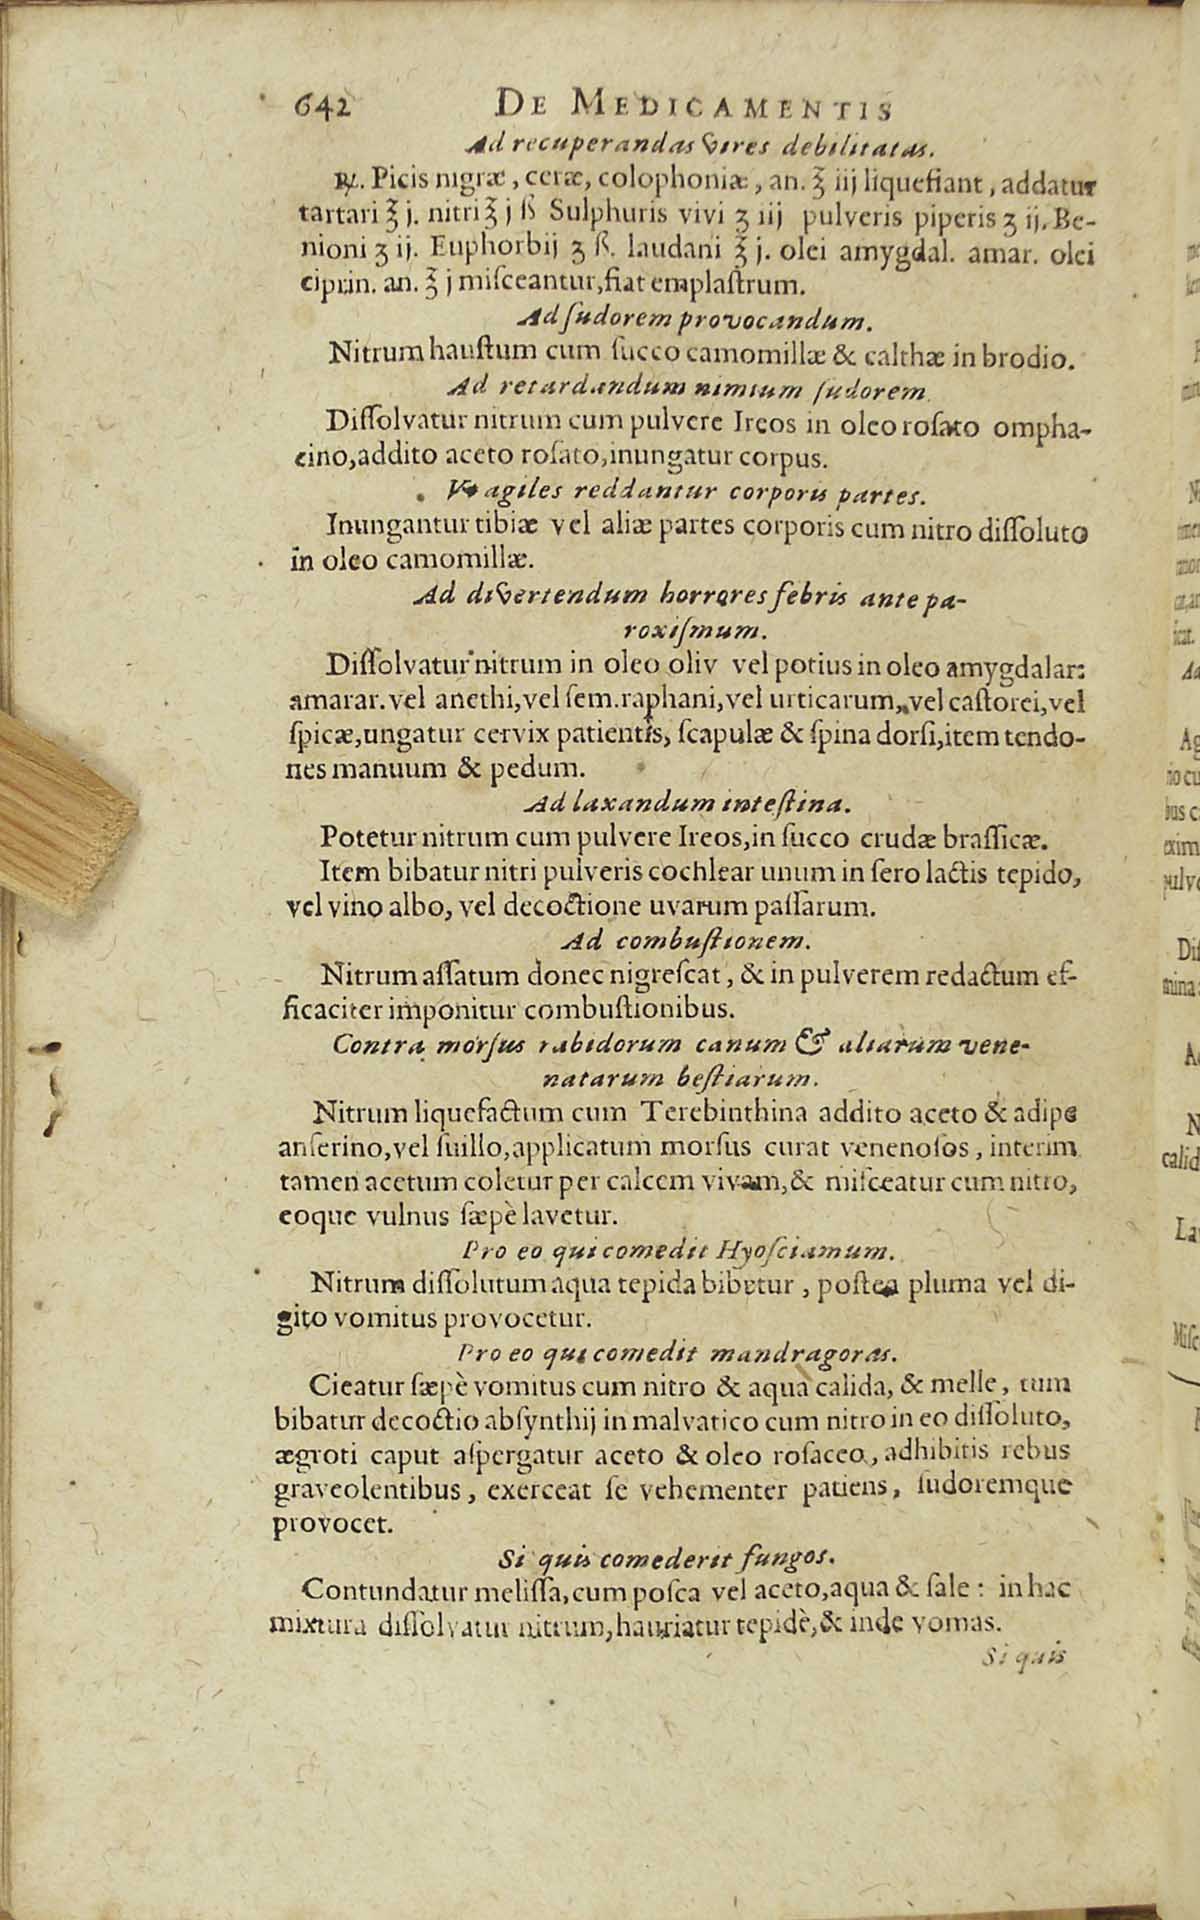 642 DE MEDICAMENTIS
Ad recuperandas vires debilitatas.
℞. Picis nigræ, ceræ, colophoniæ, an. ℥ iij liquefiant, addatur
tartari ℥ j. nitri ℥ j ß Sulphuris vivi ʒ iij pulveris piperis ʒ ij. Be-
nioni ʒ ij. Euphorbij ʒ ß. laudani ℥ j. olei amygdal. amar. olei
ciprin. an. ℥ j miſceantur, fiat emplaſtrum.
Ad ſudorem provocandum.
Nitrum hauſtum cum ſucco camomillæ & calthæ in brodio.
Ad retardandum nimium ſudorem
Diſſolvatur nitrum cum pulvere Ireos in oleo roſato ompha-
cino, addito aceto roſato, inungatur corpus.
Vt agiles reddantur corporis partes.
Inungantur tibiæ vel aliæ partes corporis cum nitro diſſoluto
in oleo camomillæ.
Ad divertendum horrores febris ante pa-
roxiſmum.
Diſſolvatur nitrum in oleo oliv vel potius in oleo amygdalar:
amarar. vel anethi, vel ſem. raphani, vel urticarum, vel caſtorei, vel
ſpicæ, ungatur cervix patientis, ſcapulæ & ſpina dorſi, item tendo-
nes manuum & pedum.
Ad laxandum inteſtina.
Potetur nitrum cum pulvere Ireos, in ſucco crudæ braſſicæ.
Item bibatur nitri pulveris cochlear unum in ſero lactis tepido,
vel vino albo, vel decoctione uvarum paſſarum.
Ad combuſtionem.
Nitrum aſſatum donec nigreſcat, & in pulverem redactum ef-
ficaciter imponitur combuſtionibus.
Contra morſus rabidorum canum & aliarum vene-
natarum beſtiarum.
Nitrum liquefactum cum Terebinthina addito aceto & adipe
anſerino, vel ſuillo, applicatum morſus curat venenoſos, interim
tamen acetum coletur per calcem vivam, & miſceatur cum nitro,
eoque vulnus ſæpè lavetur.
Pro eo qui comedit Hyoſciamum.
Nitrum diſſolutum aqua tepida bibetur, poſtea pluma vel di-
gito vomitus provocetur.
Pro eo qui comedit mandragoras.
Cieatur ſæpè vomitus cum nitro & aqua calida, & melle, tum
bibatur decoctio abſynthij in malvatico cum nitro in eo diſſoluto,
ægroti caput aſpergatur aceto & oleo roſaceo, adhibitis rebus
graveolentibus, exerceat ſe vehementer patiens, ſudoremque
provocet.
Si quis comederit fungos.
Contundatur meliſſa, cum poſca vel aceto, aqua & ſale: in hac
mixtura diſſolvatur nitrum, hauriatur tepidè, & inde vomas.
Si quis